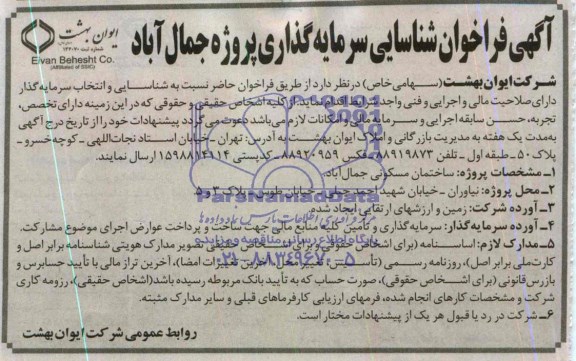 آگهی فراخوان شناسایی سرمایه گذاری پروژه جمال آباد
ایوان بهشت
شماره ثبت ۱۴۴۰۷۰
Eivan Behesht Co.
(Affiliated of SSIC)
شرکت ایوان بهشت (سهامی خاص) درنظر دارد از طریق فراخوان حاضر نسبت به شناسایی و انتخاب سرمایه گذار
دارای صلاحیت مالی و اجرایی و فنی واجد شرایط اقدام نماید. از کلیه اشخاص حقیقی و حقوقی که در این زمینه دارای تخصص،
تجربه، حسن سابقه اجرایی و سرمایه مالی و امکانات لازم می باشد دعوت می گردد پیشنهادات خود را از تاریخ درج آگهی
به مدت یک هفته به مدیریت بازرگانی و املاک ایوان بهشت به آدرس: تهران - خیابان استاد نجات اللهی - کوچه خسرو -
پلاک ۵۰ - طبقه اول - تلفن ۸۸۹۱۹۸۷۳ - فکس ۸۸۹۲۰۹۵۹ - کدپستی ۱۵۹۸۸۱۴۱۱۴ ارسال نمایند.
۱- مشخصات پروژه: ساختمان مسکونی جمال آباد
۲- محل پروژه: نیاوران - خیابان شهید احمد جماران - خیابان طوبی - پلاک ۳ و ۵
۳- آورده شرکت: زمین و ارزشهای ارتقایی ایجاد شده.
۴- آورده سرمایه گذار: سرمایه گذاری و تأمین کلیه منابع مالی جهت ساخت و پرداخت عوارض اجرای موضوع مشارکت.
۵- مدارک لازم: اساسنامه (برای اشخاص حقوقی) و برای اشخاص حقیقی تصویر مدارک هویتی شناسنامه برابر اصل و
کارت ملی برابر اصل)، روزنامه رسمی (تأسیس، تغییر محل، آخرین تغییرات امضا)، آخرین تراز مالی با تأیید حسابرس و
بازرس قانونی (برای اشخاص حقوقی)، صورت حساب که به تأیید بانک مربوطه رسیده باشد (اشخاص حقیقی)، رزومه کاری
شرکت و مشخصات کارهای انجام شده، فرمهای ارزیابی کارفرماهای قبلی و سایر مدارک مثبته.
۶- شرکت در رد یا قبول هر یک از پیشنهادات مختار است.
روابط عمومی شرکت ایوان بهشت
ParsNamadData
پایگاه اطلاع رسانی مناقصه و مزایده
۰۲۱-۸۸۳۴۹۶۷۰-۵